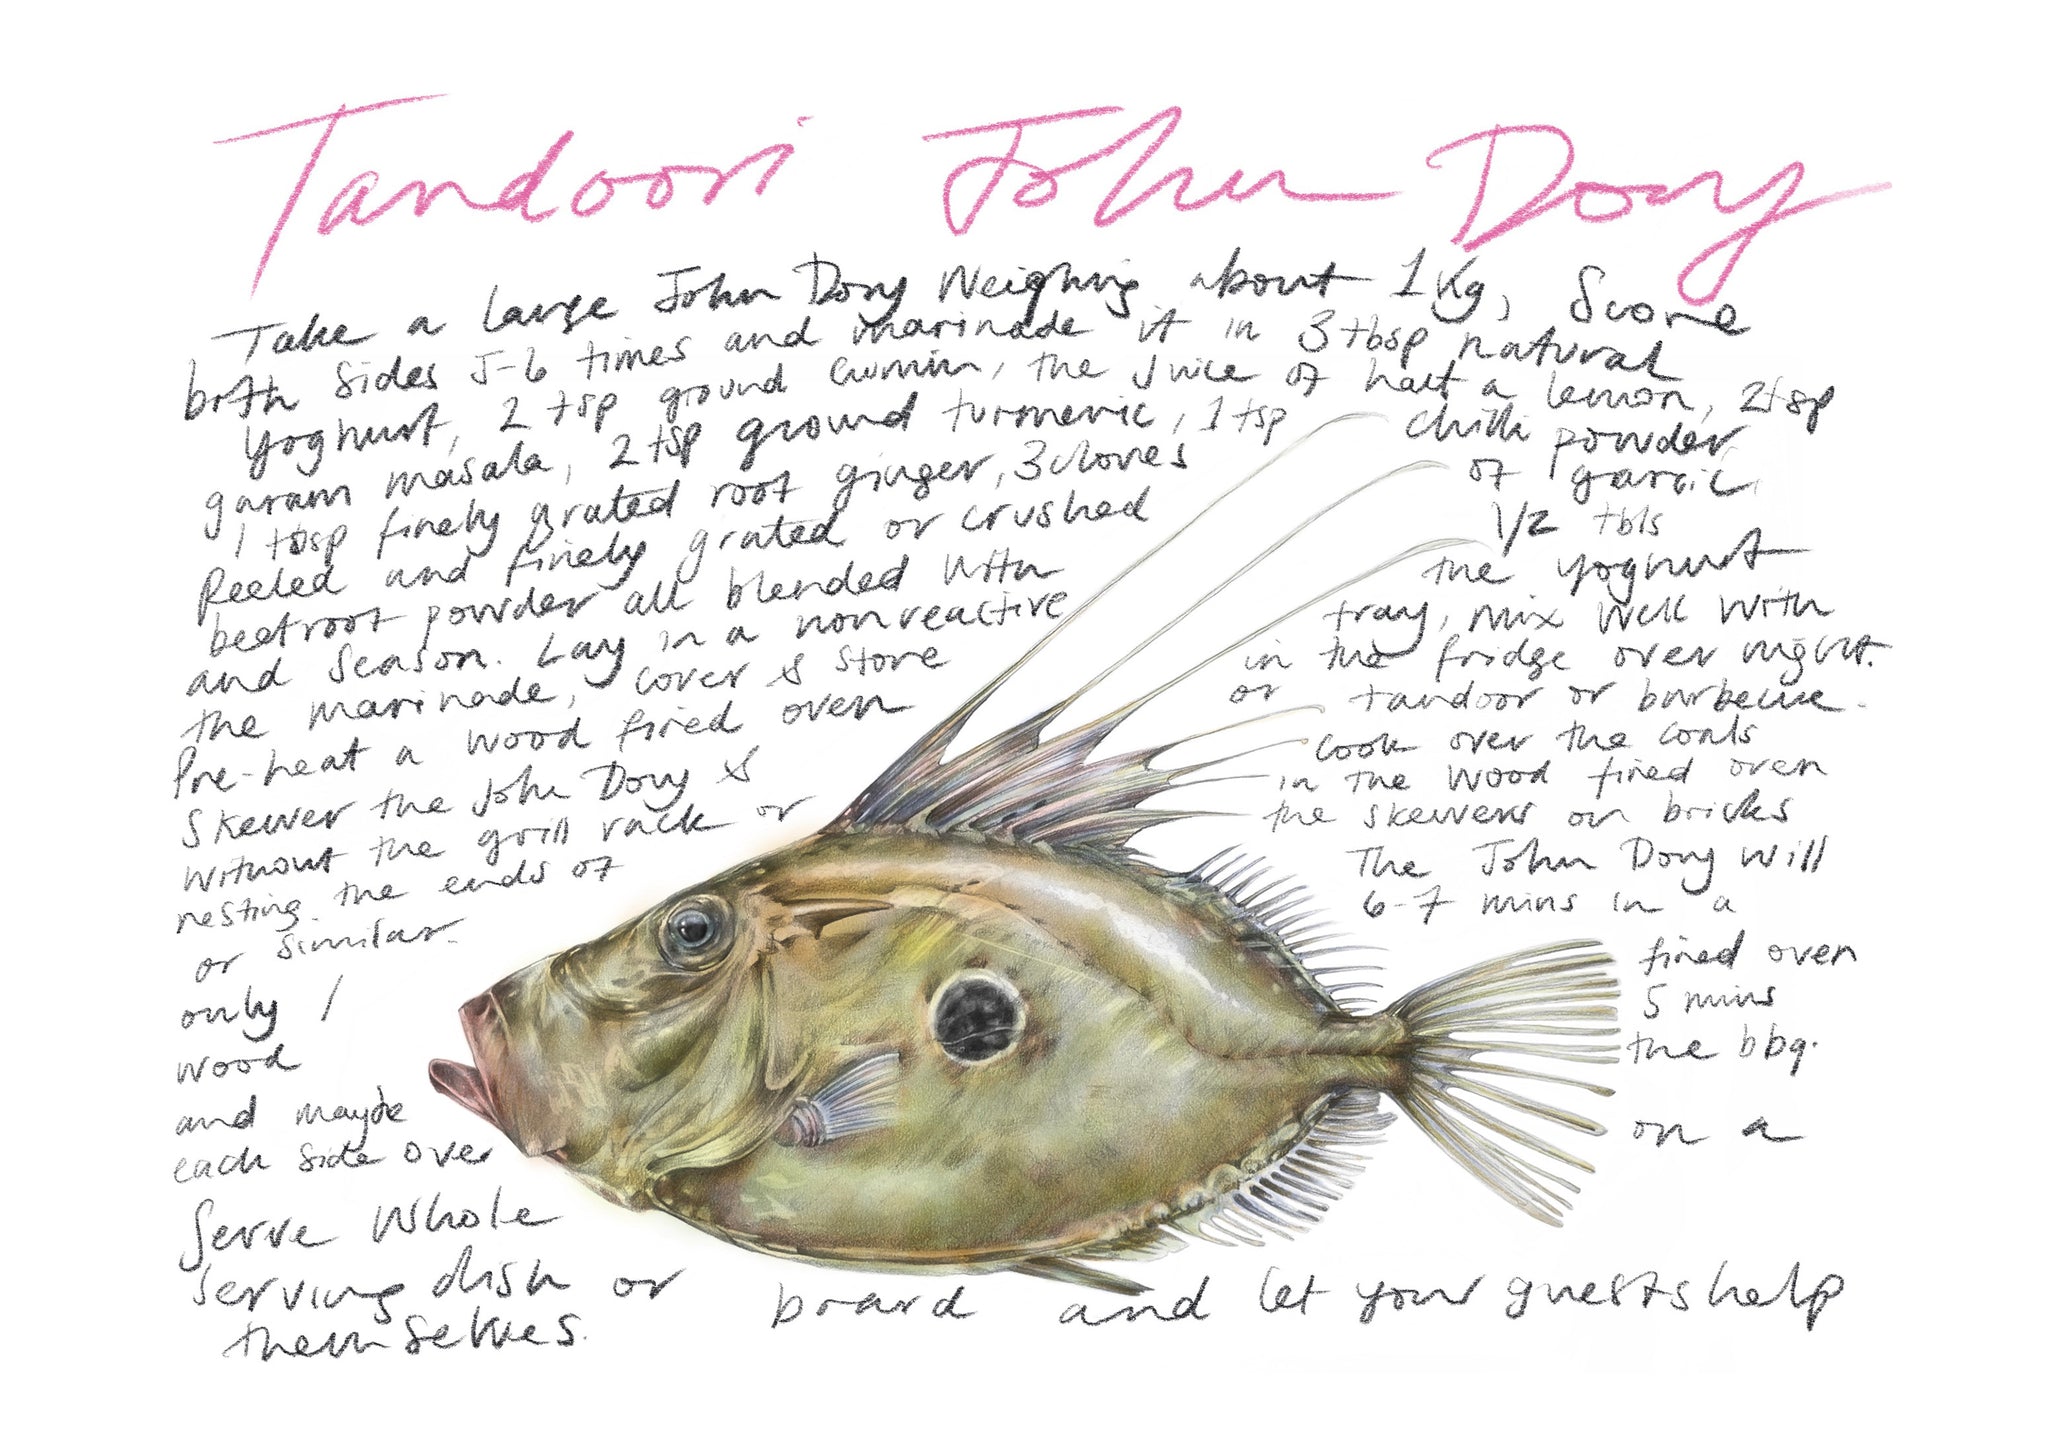 Tandoori John Dory
Take a large John Dory Weighing about 1Kg, Score
both sides 5-6 times and marinade it in 3 tbsp natural
yoghurt, 2 tsp ground cumin, the juice of half a lemon, 2tsp
garam masala, 2 tsp ground turmeric, 1 tsp chilli powder
1 tbsp finely grated root ginger, 3 cloves of garlic,
Peeled and finely grated or crushed 1/2 tbls
beetroot powder all blended with the yoghurt
and season. Lay in a nonreactive tray, mix well with
the marinade, cover & store in the fridge over night.
Pre-heat a wood fired oven or tandoor or barbecue.
Skewer the John Dory & cook over the coals
without the grill rack or in the wood fired oven
resting the ends of the skewers on bricks
or similar. The John Dory will
only / 6-7 mins in a
wood fired oven
and maybe 5 mins
each side over the bbq.
Serve whole on a
serving dish or board and let your guests help
themselves.